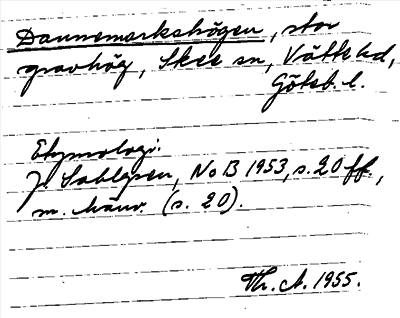 Dannemarkshögen, stor
gravhög, Skee sn, Vätte hd,
Götsb. l.
Etymologi.
J. Sahlgren, NoB 1953, s. 20 ff,
m. hänv. (s. 20).
Th. A. 1955.